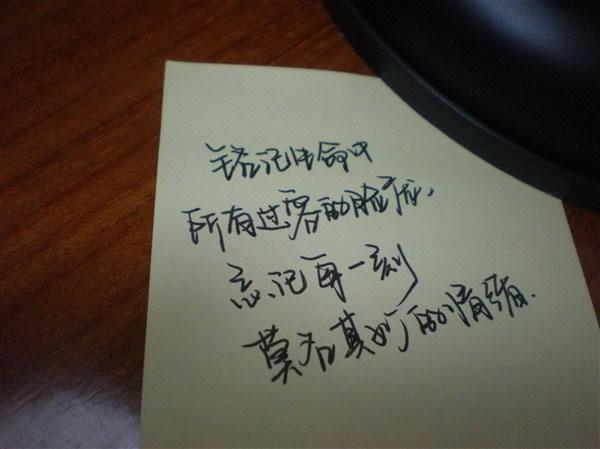 铭记生命中
所有过客的脸庞、
忘记每一刻
莫名其妙的情绪.